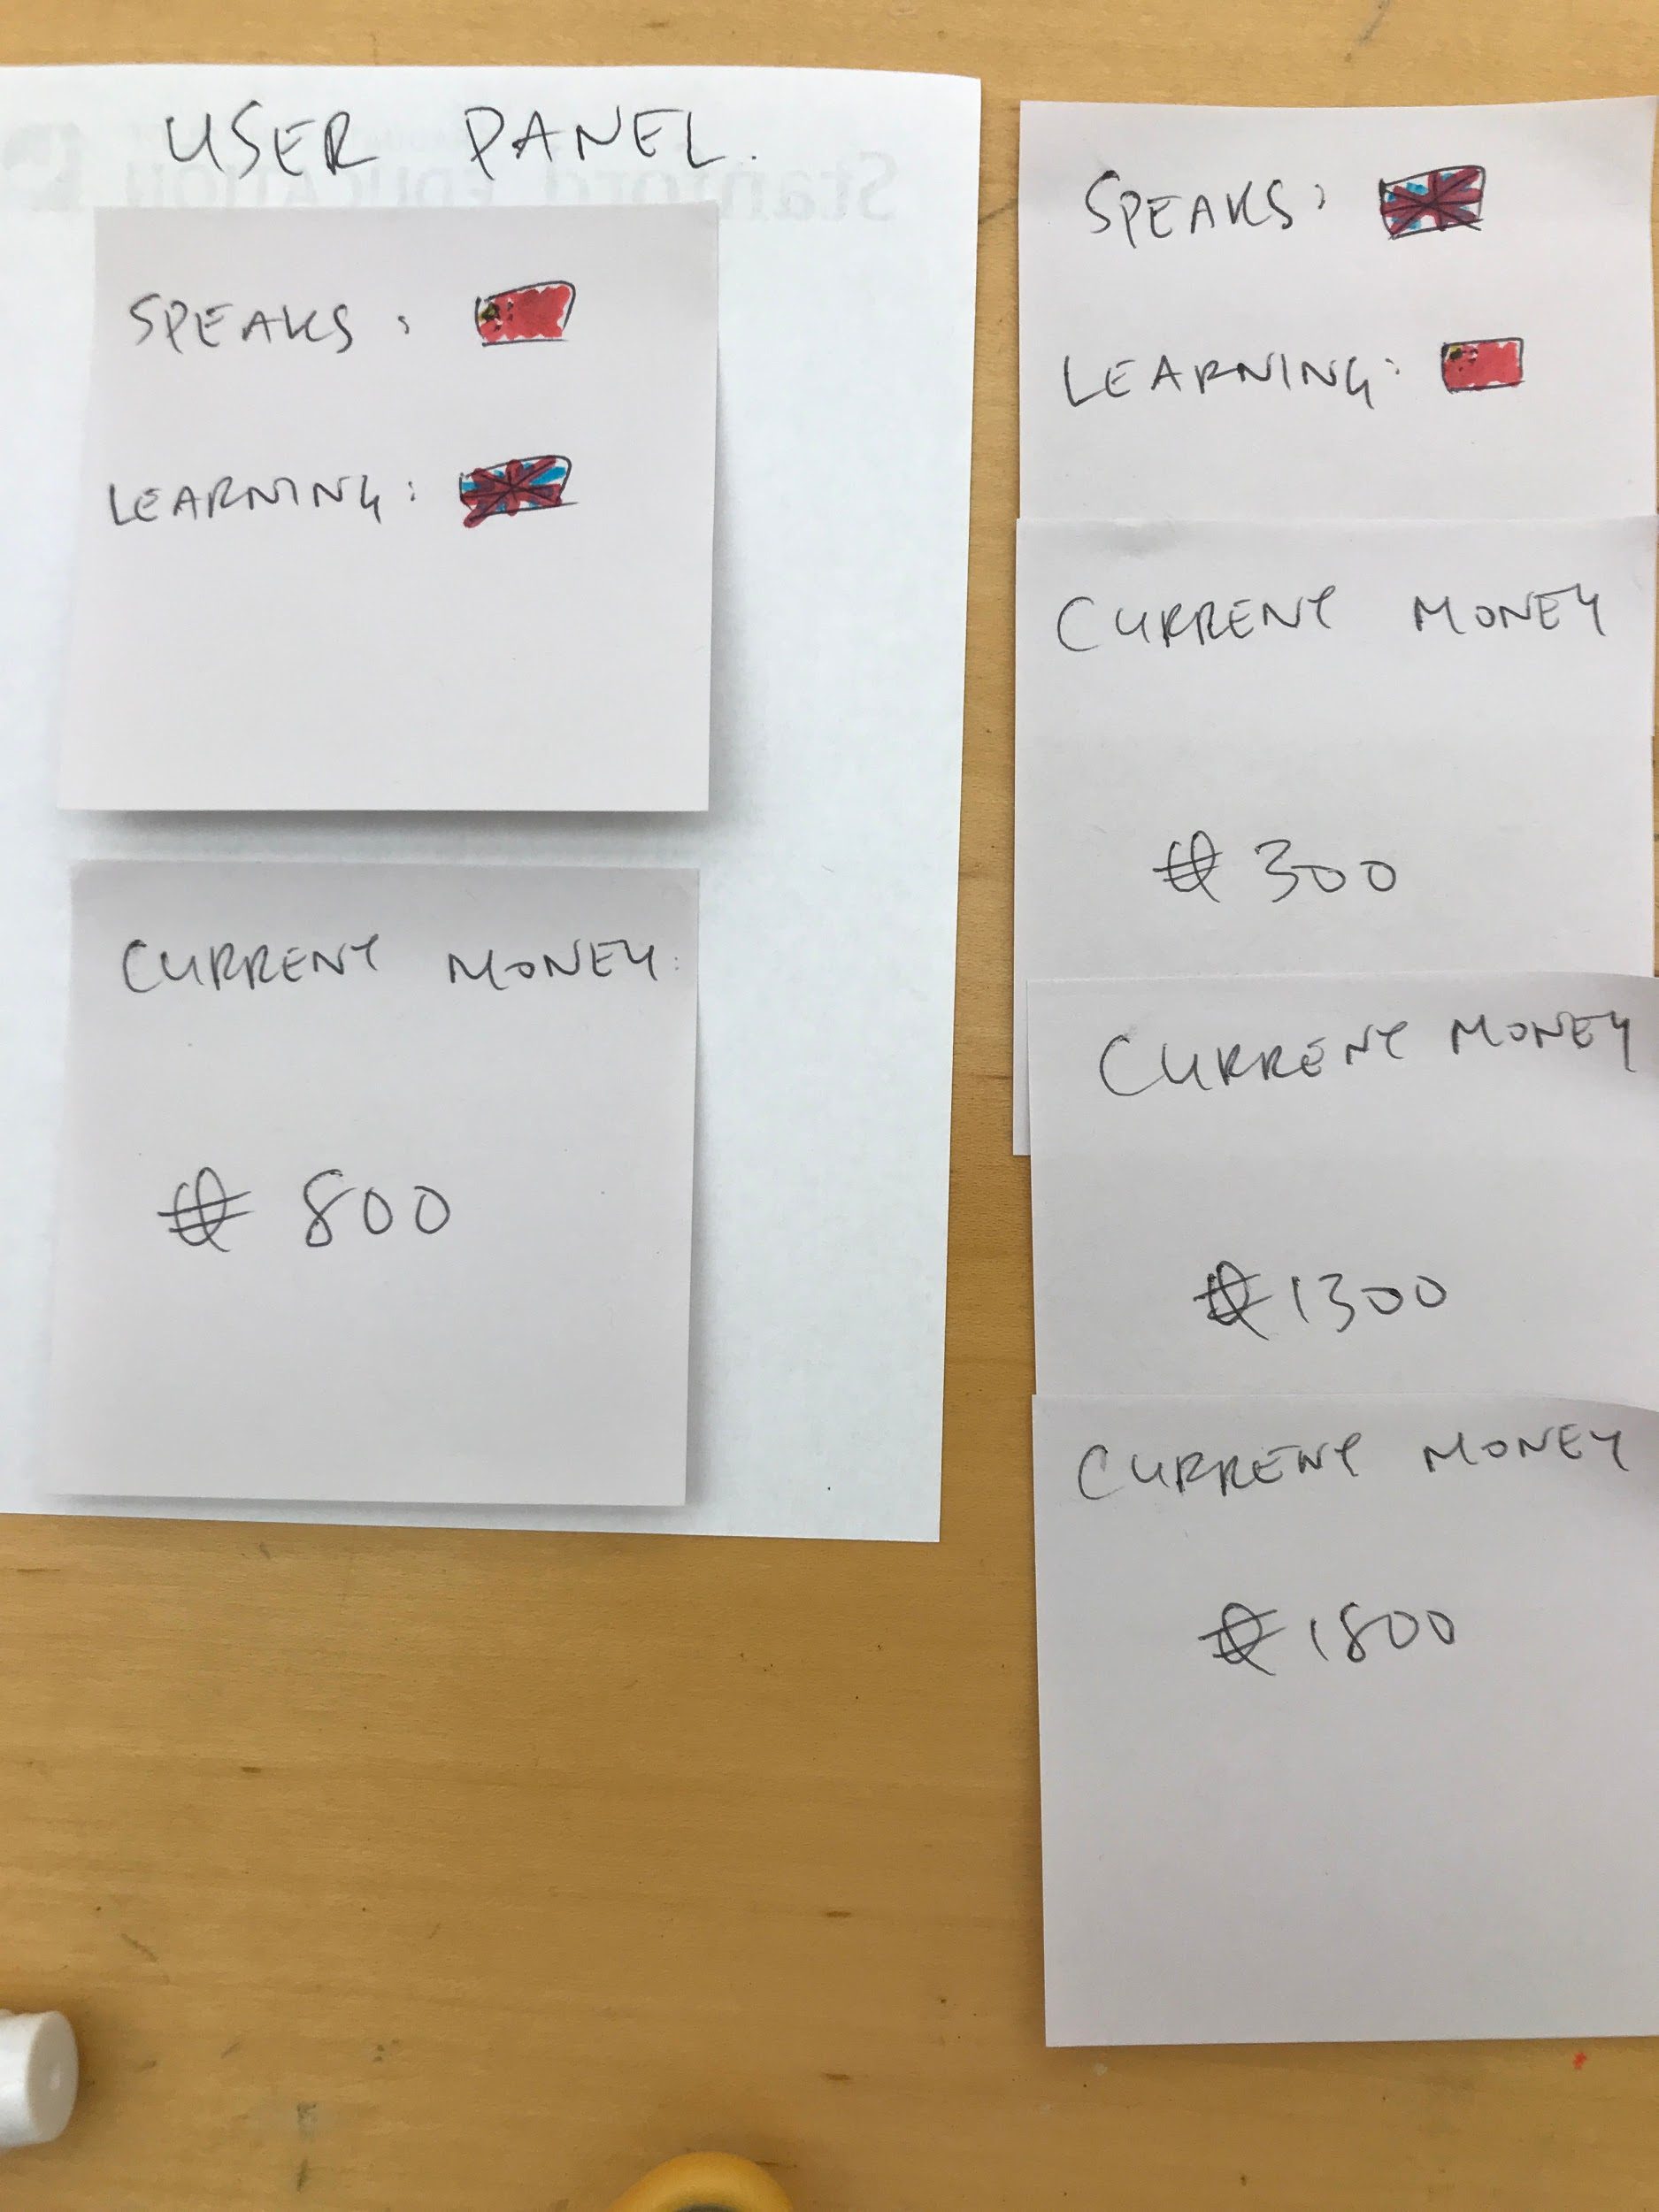 USER PANEL.
SPEAKS:
LEARNING:
CURRENT MONEY:
800
SPEAKS:
LEARNING:
CURRENT MONEY
300
CURRENT MONEY
1300
CURRENT MONEY
1800
Stanford EDUCATION